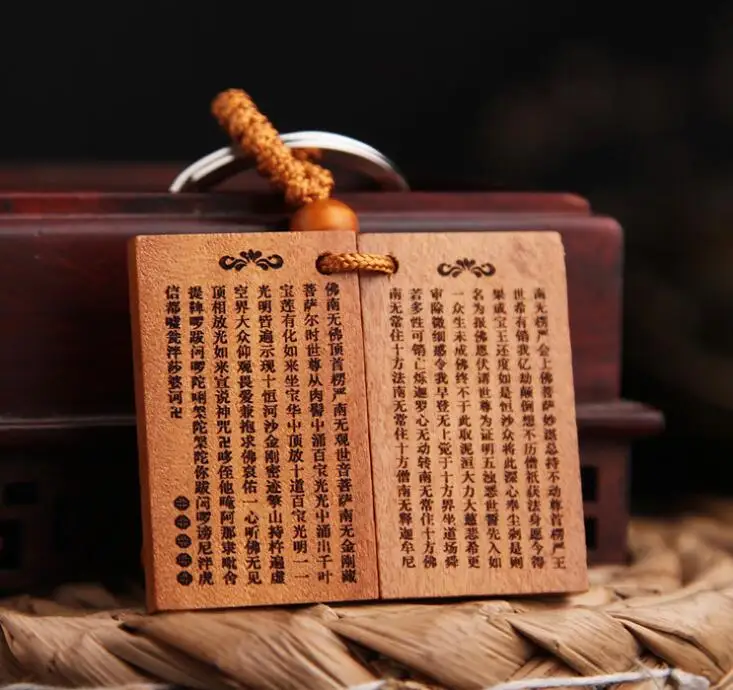 南无楞严会上佛菩萨妙湛总持不动尊首楞严王
世希有销我亿劫颠倒想不历僧祇获法身愿今得
果成宝王还度如是恒沙众将此深心奉尘刹是则
名为报佛恩伏请世尊为证明五浊恶世誓先入如
一众生未成佛终不于此取泥洹大力大慈悲希更
审除微细惑令我早登无上觉于十方界坐道场舜
若多性可销亡烁迦罗心无动转南无常住十方佛
南无常住十方法南无常住十方僧南无释迦牟尼
佛南无佛顶首楞严南无观世音菩萨南无金刚藏
菩萨尔时世尊从肉髻中涌百宝光光中涌出千叶
宝莲有化如来坐宝华中顶放十道百宝光明一一
光明皆遍示现十恒河沙金刚密迹擎山持杵遍虚
空界大众仰观畏爱兼抱求佛哀佑一心听佛无见
顶相放光如来宣说神咒卍哆侄他唵阿那隶毗舍
提鞞啰跋阇啰陀唎槃陀槃陀你跋阇啰谤尼泮虎
信都嘘瓮泮莎婆诃卍